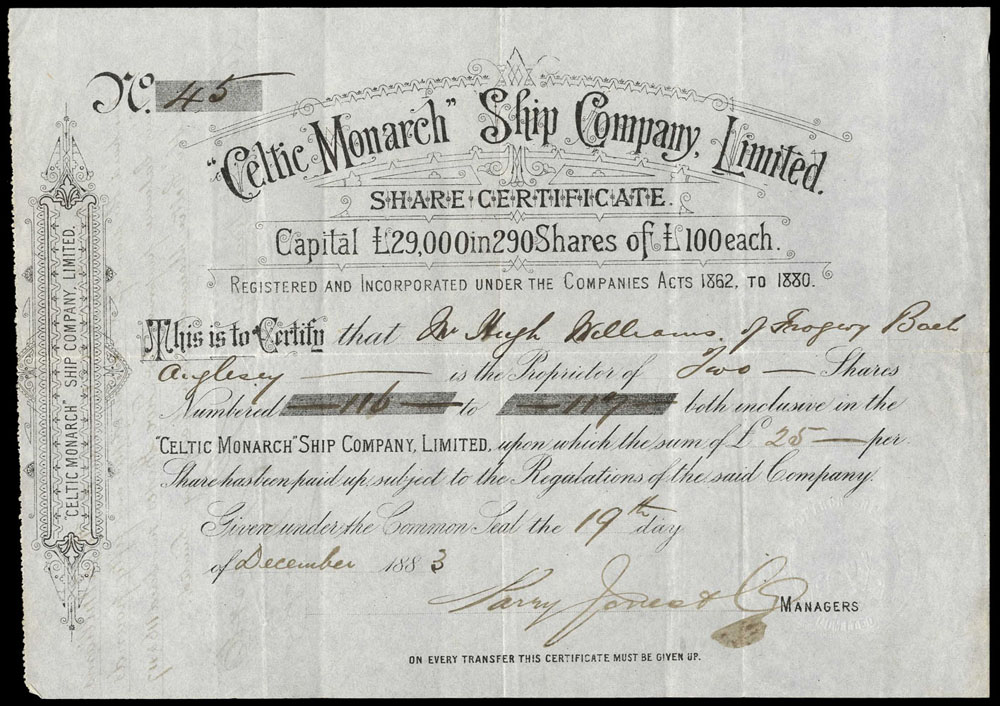 No. 45
"Celtic Monarch" Ship Company, Limited.
SHARE CERTIFICATE.
Capital £29,000 in 290 Shares of £100 each.
REGISTERED AND INCORPORATED UNDER THE COMPANIES ACTS 1862, TO 1880.
This is to Certify that Mr Hugh Williams, of Frogwy Bach
Anglesey is the Proprietor of Two Shares
Numbered 116 to 117 both inclusive in the
"CELTIC MONARCH" SHIP COMPANY, LIMITED, upon which the sum of £ 25 per
Share has been paid up, subject to the Regulations of the said Company.
Given under the Common Seal the 19th day
of December 1883
Parry Jones & Co MANAGERS
ON EVERY TRANSFER THIS CERTIFICATE MUST BE GIVEN UP.
"CELTIC MONARCH" SHIP COMPANY, LIMITED.